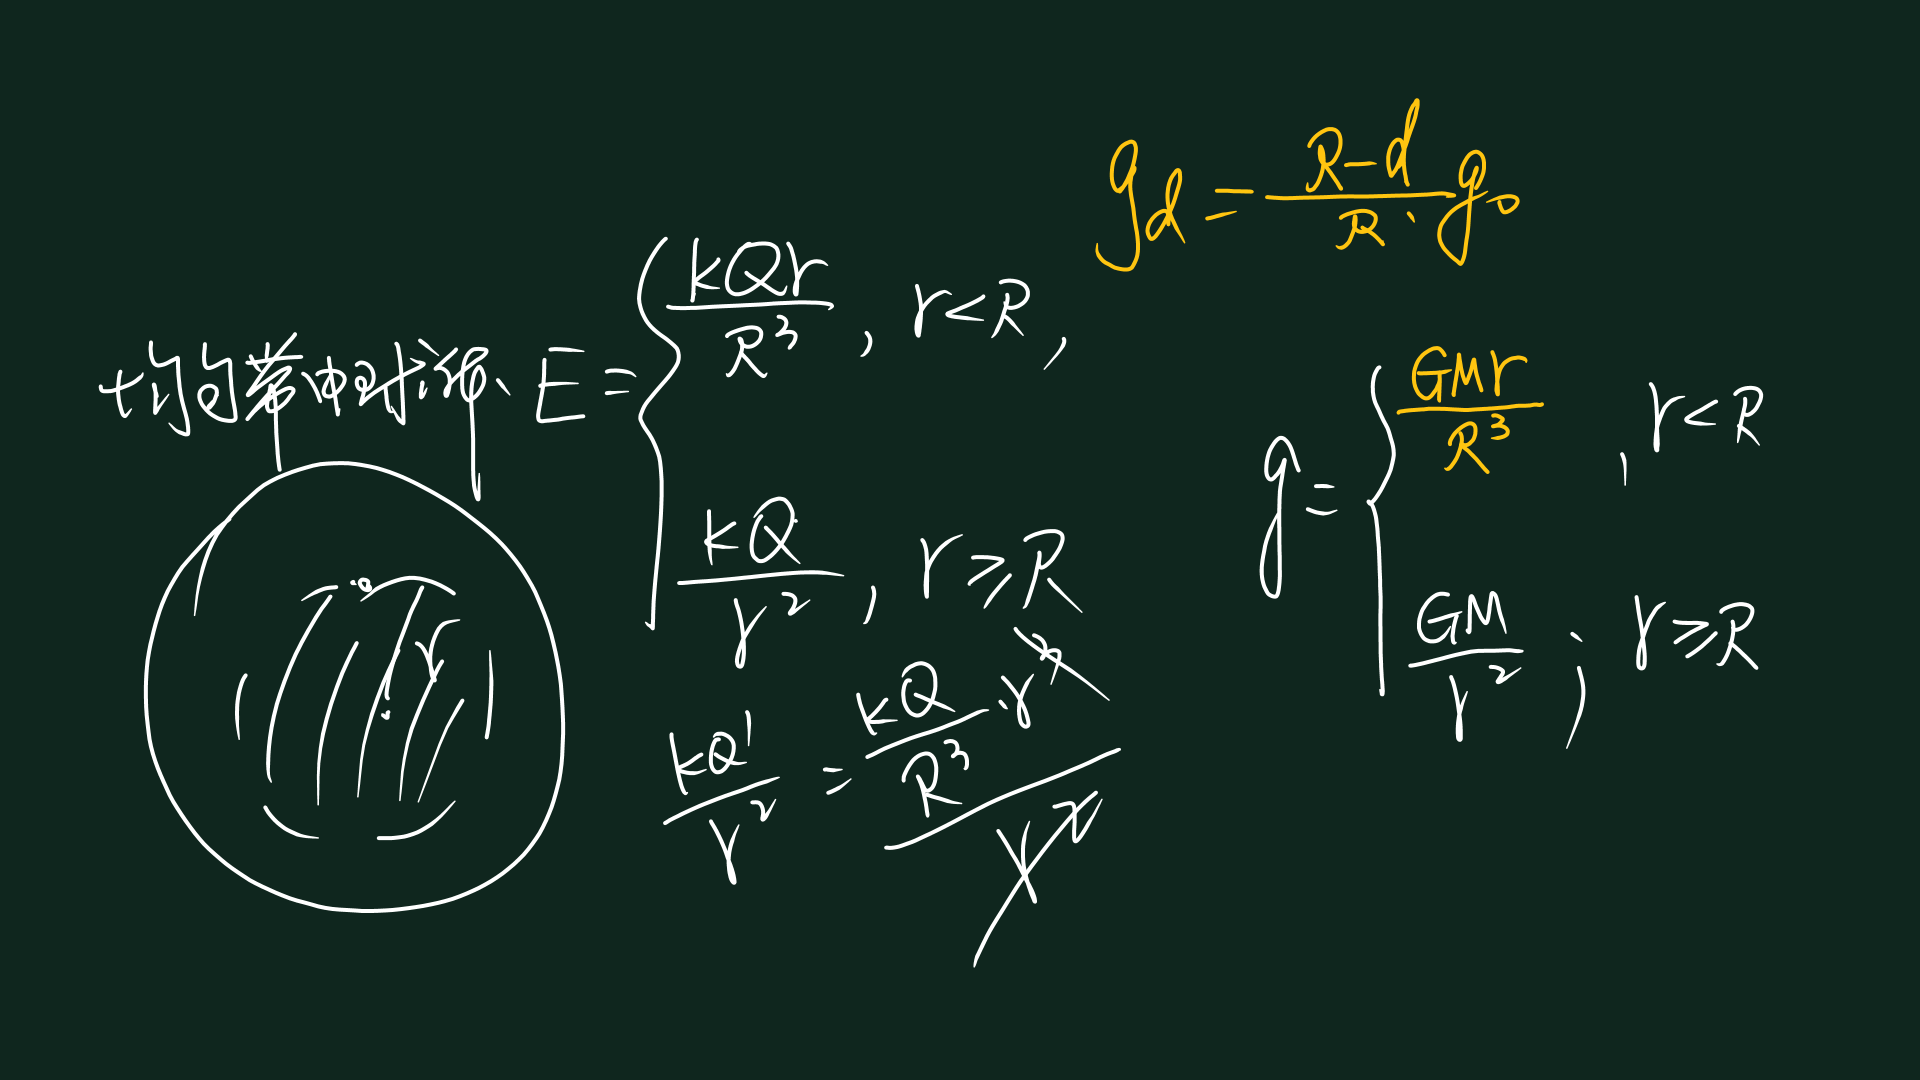 g_d = \frac{R-d}{R} \cdot g_0
均匀带电球体 E = \begin{cases} \frac{kQr}{R^3}, r<R, \\ \frac{kQ}{r^2}, r \geqslant R \end{cases}
g = \begin{cases} \frac{GMr}{R^3}, r<R \\ \frac{GM}{r^2}; r \geqslant R \end{cases}
r
\frac{kQ'}{r^2} = \frac{\frac{kQ}{R^3} \cdot r^3}{r^2}